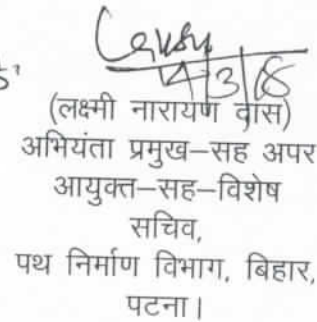 14/3/18
(लक्ष्मी नारायण दास)
अभियंता प्रमुख–सह अपर
आयुक्त–सह–विशेष
सचिव,
पथ निर्माण विभाग, बिहार,
पटना।